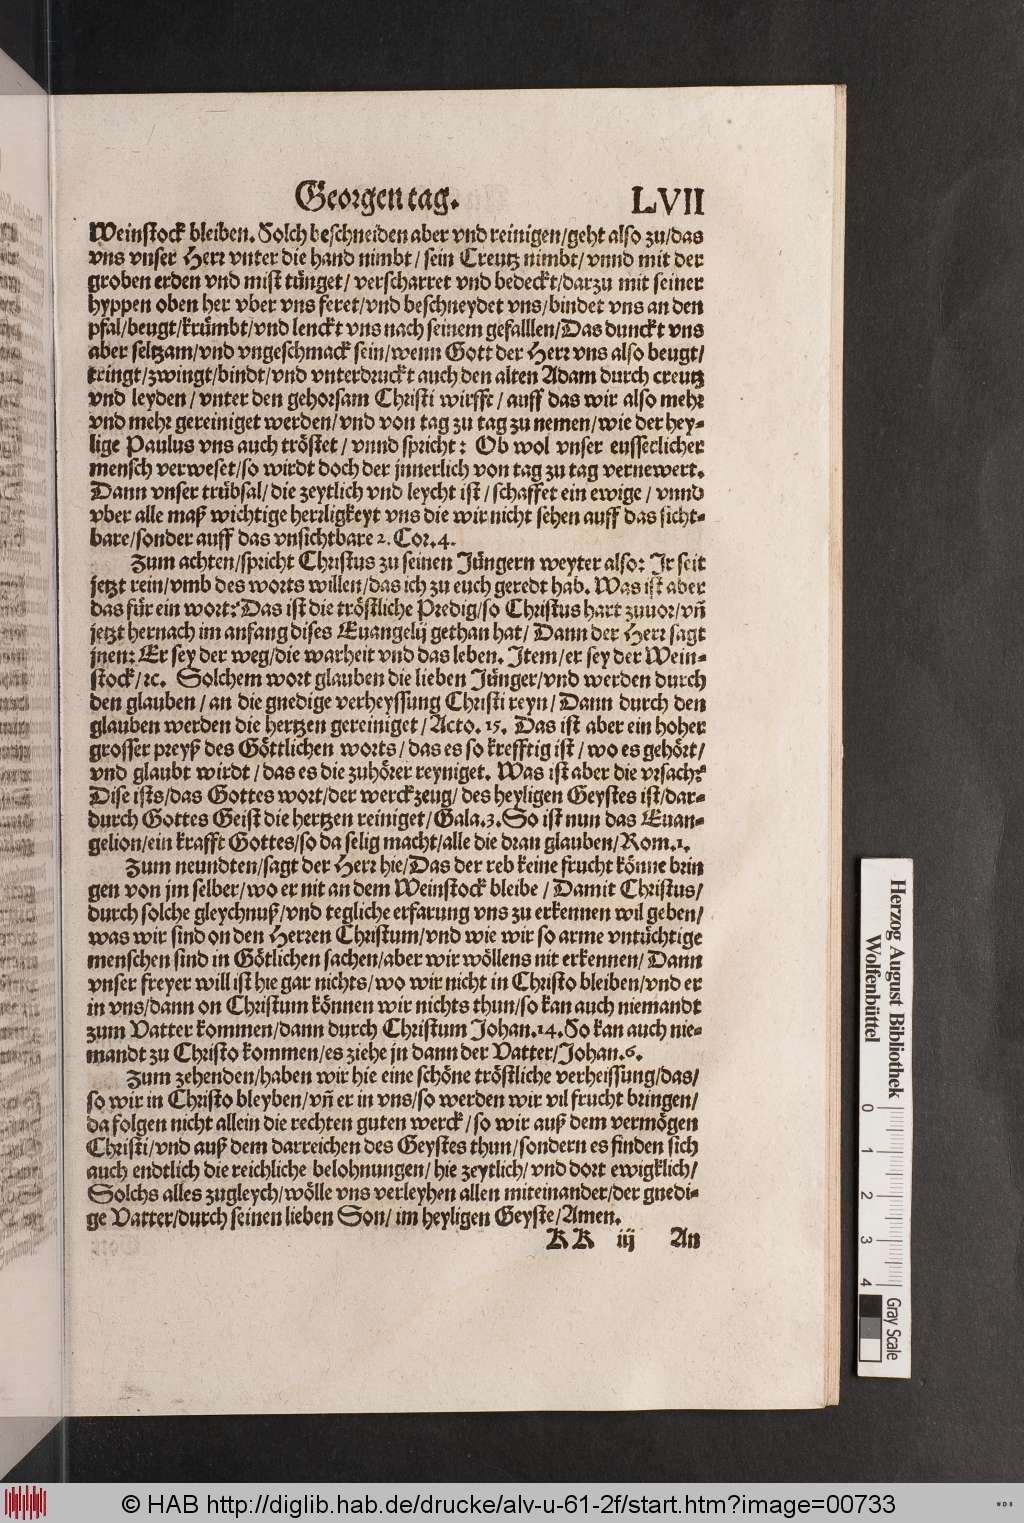 Georgen tag. LVII
Weinstock bleiben. Solch beschneiden aber vnd reinigen/geht also zu/das
vns vnser Herr vnter die hand nimbt/ sein Creutz nimbt/ vnnd mit der
groben erden vnd mist tünget/ verscharret vnd bedeckt/darzu mit seiner
hyppen oben her vber vns feret/vnd beschneydet vns/bindet vns an den
pfal/beugt/krümbt/vnd lenckt vns nach seinem gefalllen/Das dunckt vns
aber seltzam/vnd vngeschmack sein/wenn Gott der Herr vns also beugt/
tringt/zwingt/bindt/vnd vnterdruckt auch den alten Adam durch creutz
vnd leyden/ vnter den gehorsam Christi wirfft/ auff das wir also mehr
vnd mehr gereiniget werden/vnd von tag zu tag zu nemen/wie der hey-
lige Paulus vns auch tröstet/ vnnd spricht: Ob wol vnser eusserlicher
mensch verweset/so wirdt doch der jnnerlich von tag zu tag vernewert.
Dann vnser trübsal/die zeytlich vnd leycht ist/schaffet ein ewige/ vnnd
vber alle maß wichtige herrligkeyt vns die wir nicht sehen auff das sicht-
bare/sonder auff das vnsichtbare 2. Cor.4.
Zum achten/spricht Christus zu seinen Jüngern weyter also: Jr seit
jetzt rein/vmb des worts willen/das ich zu euch geredt hab. Was ist aber
das für ein wort? Das ist die tröstliche Predig/so Christus hart zuuor/vñ
jetzt hernach im anfang dises Euangelij gethan hat/ Dann der Herr sagt
jnen: Er sey der weg/die warheit vnd das leben. Jtem/er sey der Wein-
stock/ꝛc. Solchem wort glauben die lieben Jünger/vnd werden durch
den glauben/ an die gnedige verheyssung Christi reyn/ Dann durch den
glauben werden die hertzen gereiniget/Acto. 15. Das ist aber ein hoher
grosser preyß des Göttlichen worts/das es so krefftig ist/ wo es gehört/
vnd glaubt wirdt/das es die zuhörer reyniget. Was ist aber die vrsach?
Dise ists/das Gottes wort/der werckzeug/ des heyligen Geystes ist/dar-
durch Gottes Geist die hertzen reiniget/Gala.3. So ist nun das Euan-
gelion/ein krafft Gottes/so da selig macht/alle die dran glauben/Rom.1.
Zum neundten/sagt der Herr hie/Das der reb keine frucht könne brin
gen von jm selber/wo er nit an dem Weinstock bleibe/ Damit Christus/
durch solche gleychnuß/vnd tegliche erfarung vns zu erkennen wil geben/
was wir sind on den Herren Christum/vnd wie wir so arme vntüchtige
menschen sind in Götlichen sachen/aber wir wöllens nit erkennen/ Dann
vnser freyer will ist hie gar nichts/wo wir nicht in Christo bleiben/vnd er
in vns/dann on Christum können wir nichts thun/so kan auch niemandt
zum Vatter kommen/dann durch Christum Johan.14. So kan auch nie-
mandt zu Christo kommen/es ziehe jn dann der Vatter/Johan.6.
Zum zehenden/haben wir hie eine schöne tröstliche verheissung/das/
so wir in Christo bleyben/vñ er in vns/so werden wir vil frucht bringen/
da folgen nicht allein die rechten guten werck/so wir auß dem vermögen
Christi/vnd auß dem darreichen des Geystes thun/sondern es finden sich
auch endtlich die reichliche belohnungen/ hie zeytlich/ vnd dort ewigklich/
Solchs alles zugleych/wölle vns verleyhen allen miteinander/der gnedi-
ge Vatter/durch seinen lieben Son/ im heyligen Geyste/Amen.
KK iij An
Herzog August Bibliothek
Wolfenbüttel
0 1 2 3 4
Gray Scale
© HAB http://diglib.hab.de/drucke/alv-u-61-2f/start.htm?image=00733